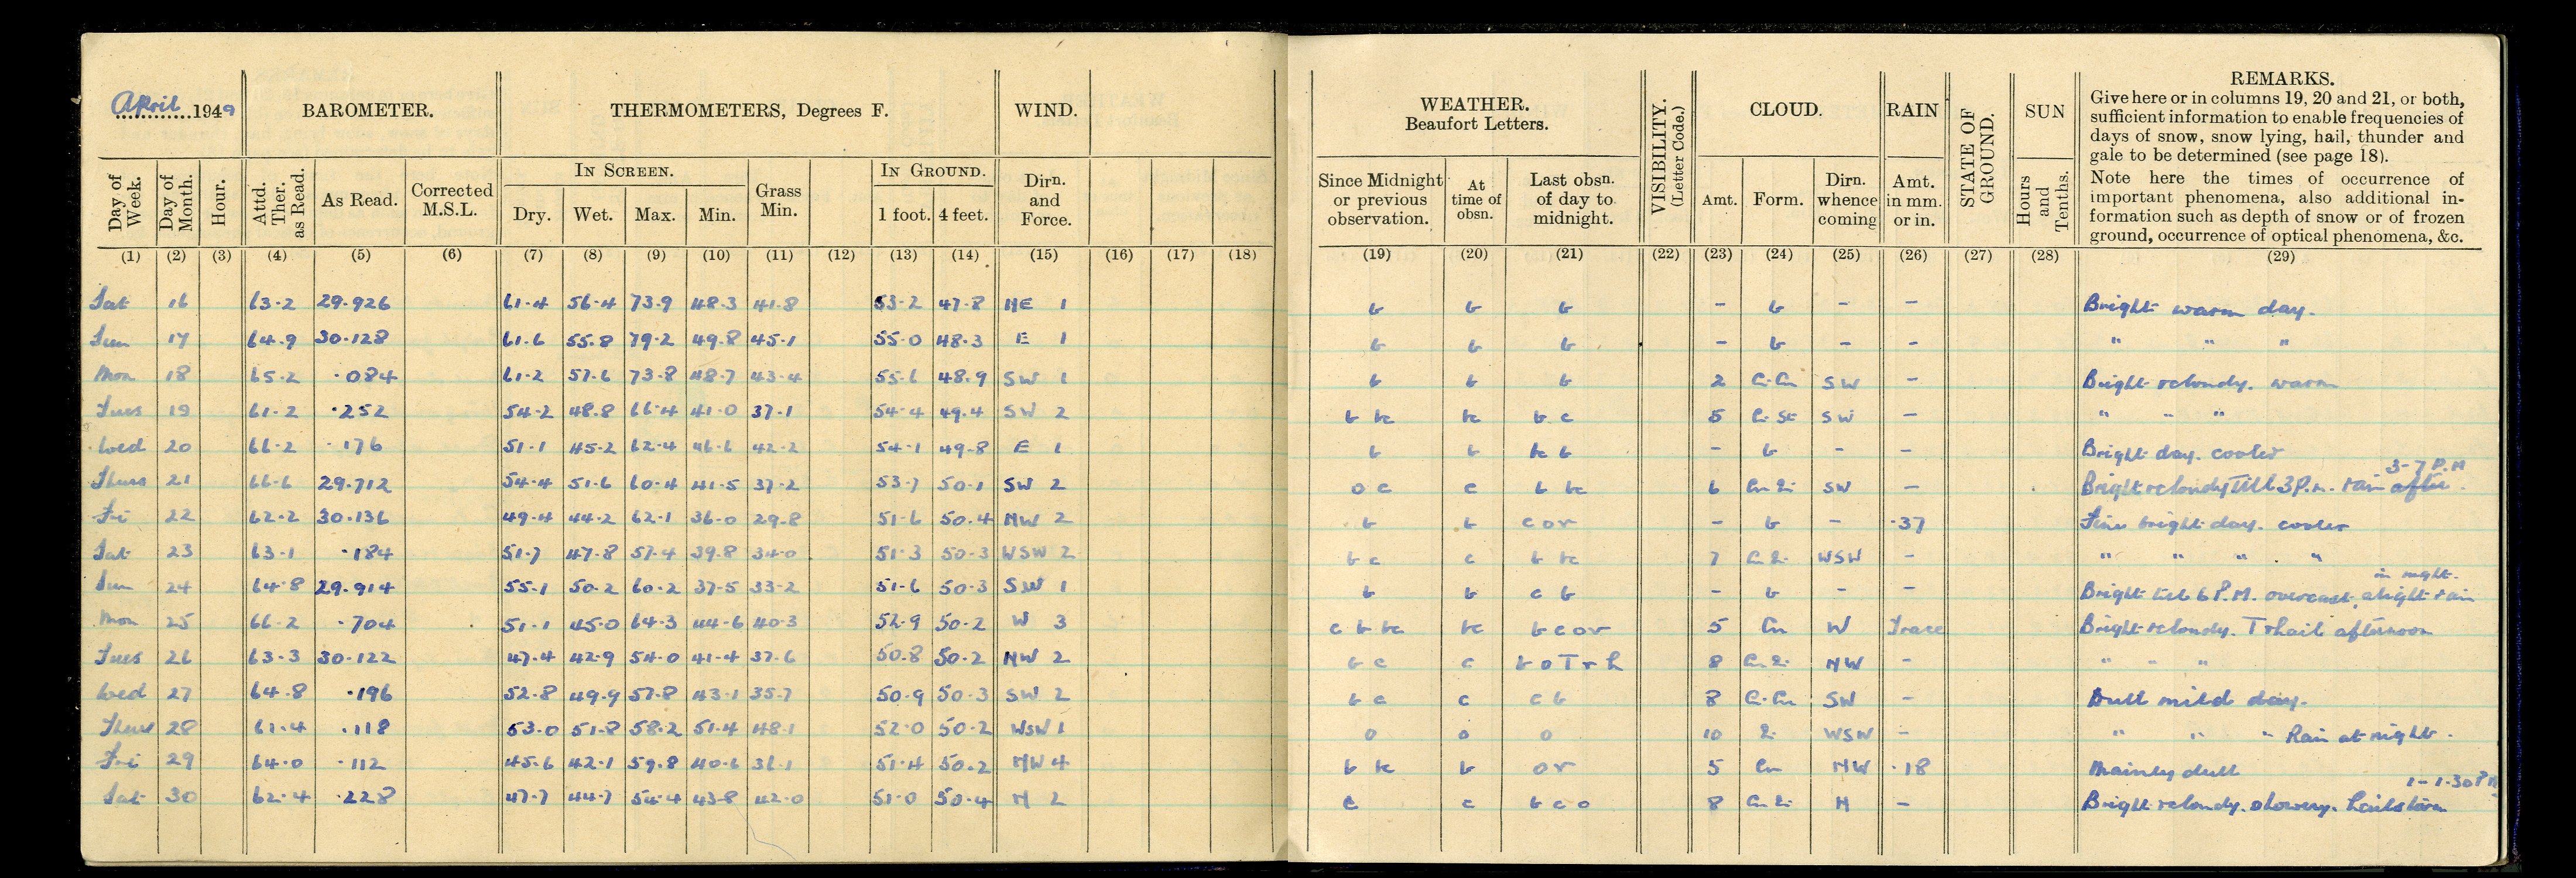 April 1949 BAROMETER. THERMOMETERS, Degrees F. WIND. WEATHER. Beaufort Letters. VISIBILITY. (Letter Code.) CLOUD. RAIN STATE OF GROUND. SUN REMARKS.
Give here or in columns 19, 20 and 21, or both,
sufficient information to enable frequencies of
days of snow, snow lying, hail, thunder and
gale to be determined (see page 18).
Note here the times of occurrence of
important phenomena, also additional in-
formation such as depth of snow or of frozen
ground, occurrence of optical phenomena, &c.
IN SCREEN. IN GROUND.
Day of Week. Day of Month. Hour. Attd. Ther. as Read. As Read. Corrected M.S.L. Dry. Wet. Max. Min. Grass Min. 1 foot. 4 feet. Dirn. and Force. Since Midnight or previous observation. At time of obsn. Last obsn. of day to midnight. Amt. Form. Dirn. whence coming Amt. in mm. or in. Hours and Tenths.
(1) (2) (3) (4) (5) (6) (7) (8) (9) (10) (11) (12) (13) (14) (15) (16) (17) (18) (19) (20) (21) (22) (23) (24) (25) (26) (27) (28) (29)
Sat 16 63.2 29.926 61.4 56.4 73.9 48.3 41.8 53.2 47.8 NE 1 b b b - b - - Bright warm day.
Sun 17 64.9 30.128 61.6 55.8 79.2 49.8 45.1 55.0 48.3 E 1 b b b - b - - " " "
Mon 18 65.2 .084 61.2 57.6 73.8 48.7 43.4 55.6 48.9 SW 1 b b b 2 Ci-Cu SW - Bright & cloudy. warm
Tues 19 61.2 .252 54.2 48.8 66.4 41.0 37.1 54.4 49.4 SW 2 b bc bc b c 5 Ci-St SW - " " "
Wed 20 66.2 .176 51.1 45.2 62.4 46.6 42.2 54.1 49.8 E 1 b b bc b - b - - Bright day. cooler
Thurs 21 66.6 29.712 54.4 51.6 60.4 41.5 37.2 53.7 50.1 SW 2 o c c b bc 6 SW - Bright & cloudy till 3 P.m. rain after 3-7 P.M
Fri 22 62.2 30.136 49.4 44.2 62.1 36.0 29.8 51.6 50.4 NW 2 b b c o r - b - .37 Fine bright day. cooler
Sat 23 63.1 .184 51.7 47.8 57.4 39.8 34.0 51.3 50.3 WSW 2 b c c b bc 7 WSW - " " " "
Sun 24 64.8 29.914 55.1 50.2 60.2 37.5 33.2 51.6 50.3 SW 1 b b c b - b - - Bright till 6 P.M. overcast, slight rain in night.
Mon 25 66.2 .704 51.1 45.0 64.3 44.6 40.3 52.9 50.2 W 3 c b bc bc b c o r 5 Cu W Trace Bright & cloudy. T & hail afternoon
Tues 26 63.3 30.122 47.4 42.9 54.0 41.4 37.6 50.8 50.2 NW 2 b c c b o T r h 8 NW - " " "
Wed 27 64.8 .196 52.8 49.9 57.8 43.1 35.7 50.9 50.3 SW 2 b c c c b 8 Ci-Cu SW - Dull mild day.
Thurs 28 61.4 .118 53.0 51.8 58.2 51.4 48.1 52.0 50.2 WSW 1 o o o 10 WSW - " " " Rain at night.
Fri 29 64.0 .112 45.6 42.1 59.8 40.6 36.1 51.4 50.2 NW 4 b bc b o r 5 Cu NW .18 Mainly dull
Sat 30 62.4 .228 47.7 44.7 54.4 43.8 42.0 51.0 50.4 N 2 c c b c o 8 N - Bright & cloudy. showery. hailstorm 1-1.30 PM